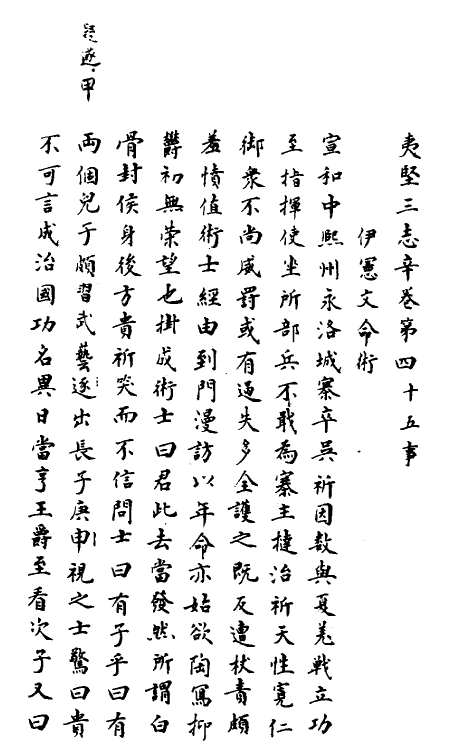 夷堅三志辛卷第四十五事
伊憲文命術
宣和中熙州永洛城寨卒吳祈因數與夏羌戰立功
至指揮使坐所部兵不戢為寨主撻治祈天性寬仁
御眾不尚威罰或有過失多全護之既反遭杖責頗
羞憤值術士經由到門漫訪以年命亦姑欲陶寫抑
鬱初無榮望也掛成術士曰君此去當發然所謂白
骨封侯身後方貴祈笑而不信問士曰有子乎曰有
兩個兒子頗習武藝逐出長子庚申視之士驚曰貴
不可言成治國功名異日當享王爵至看次子又曰
疑遂甲